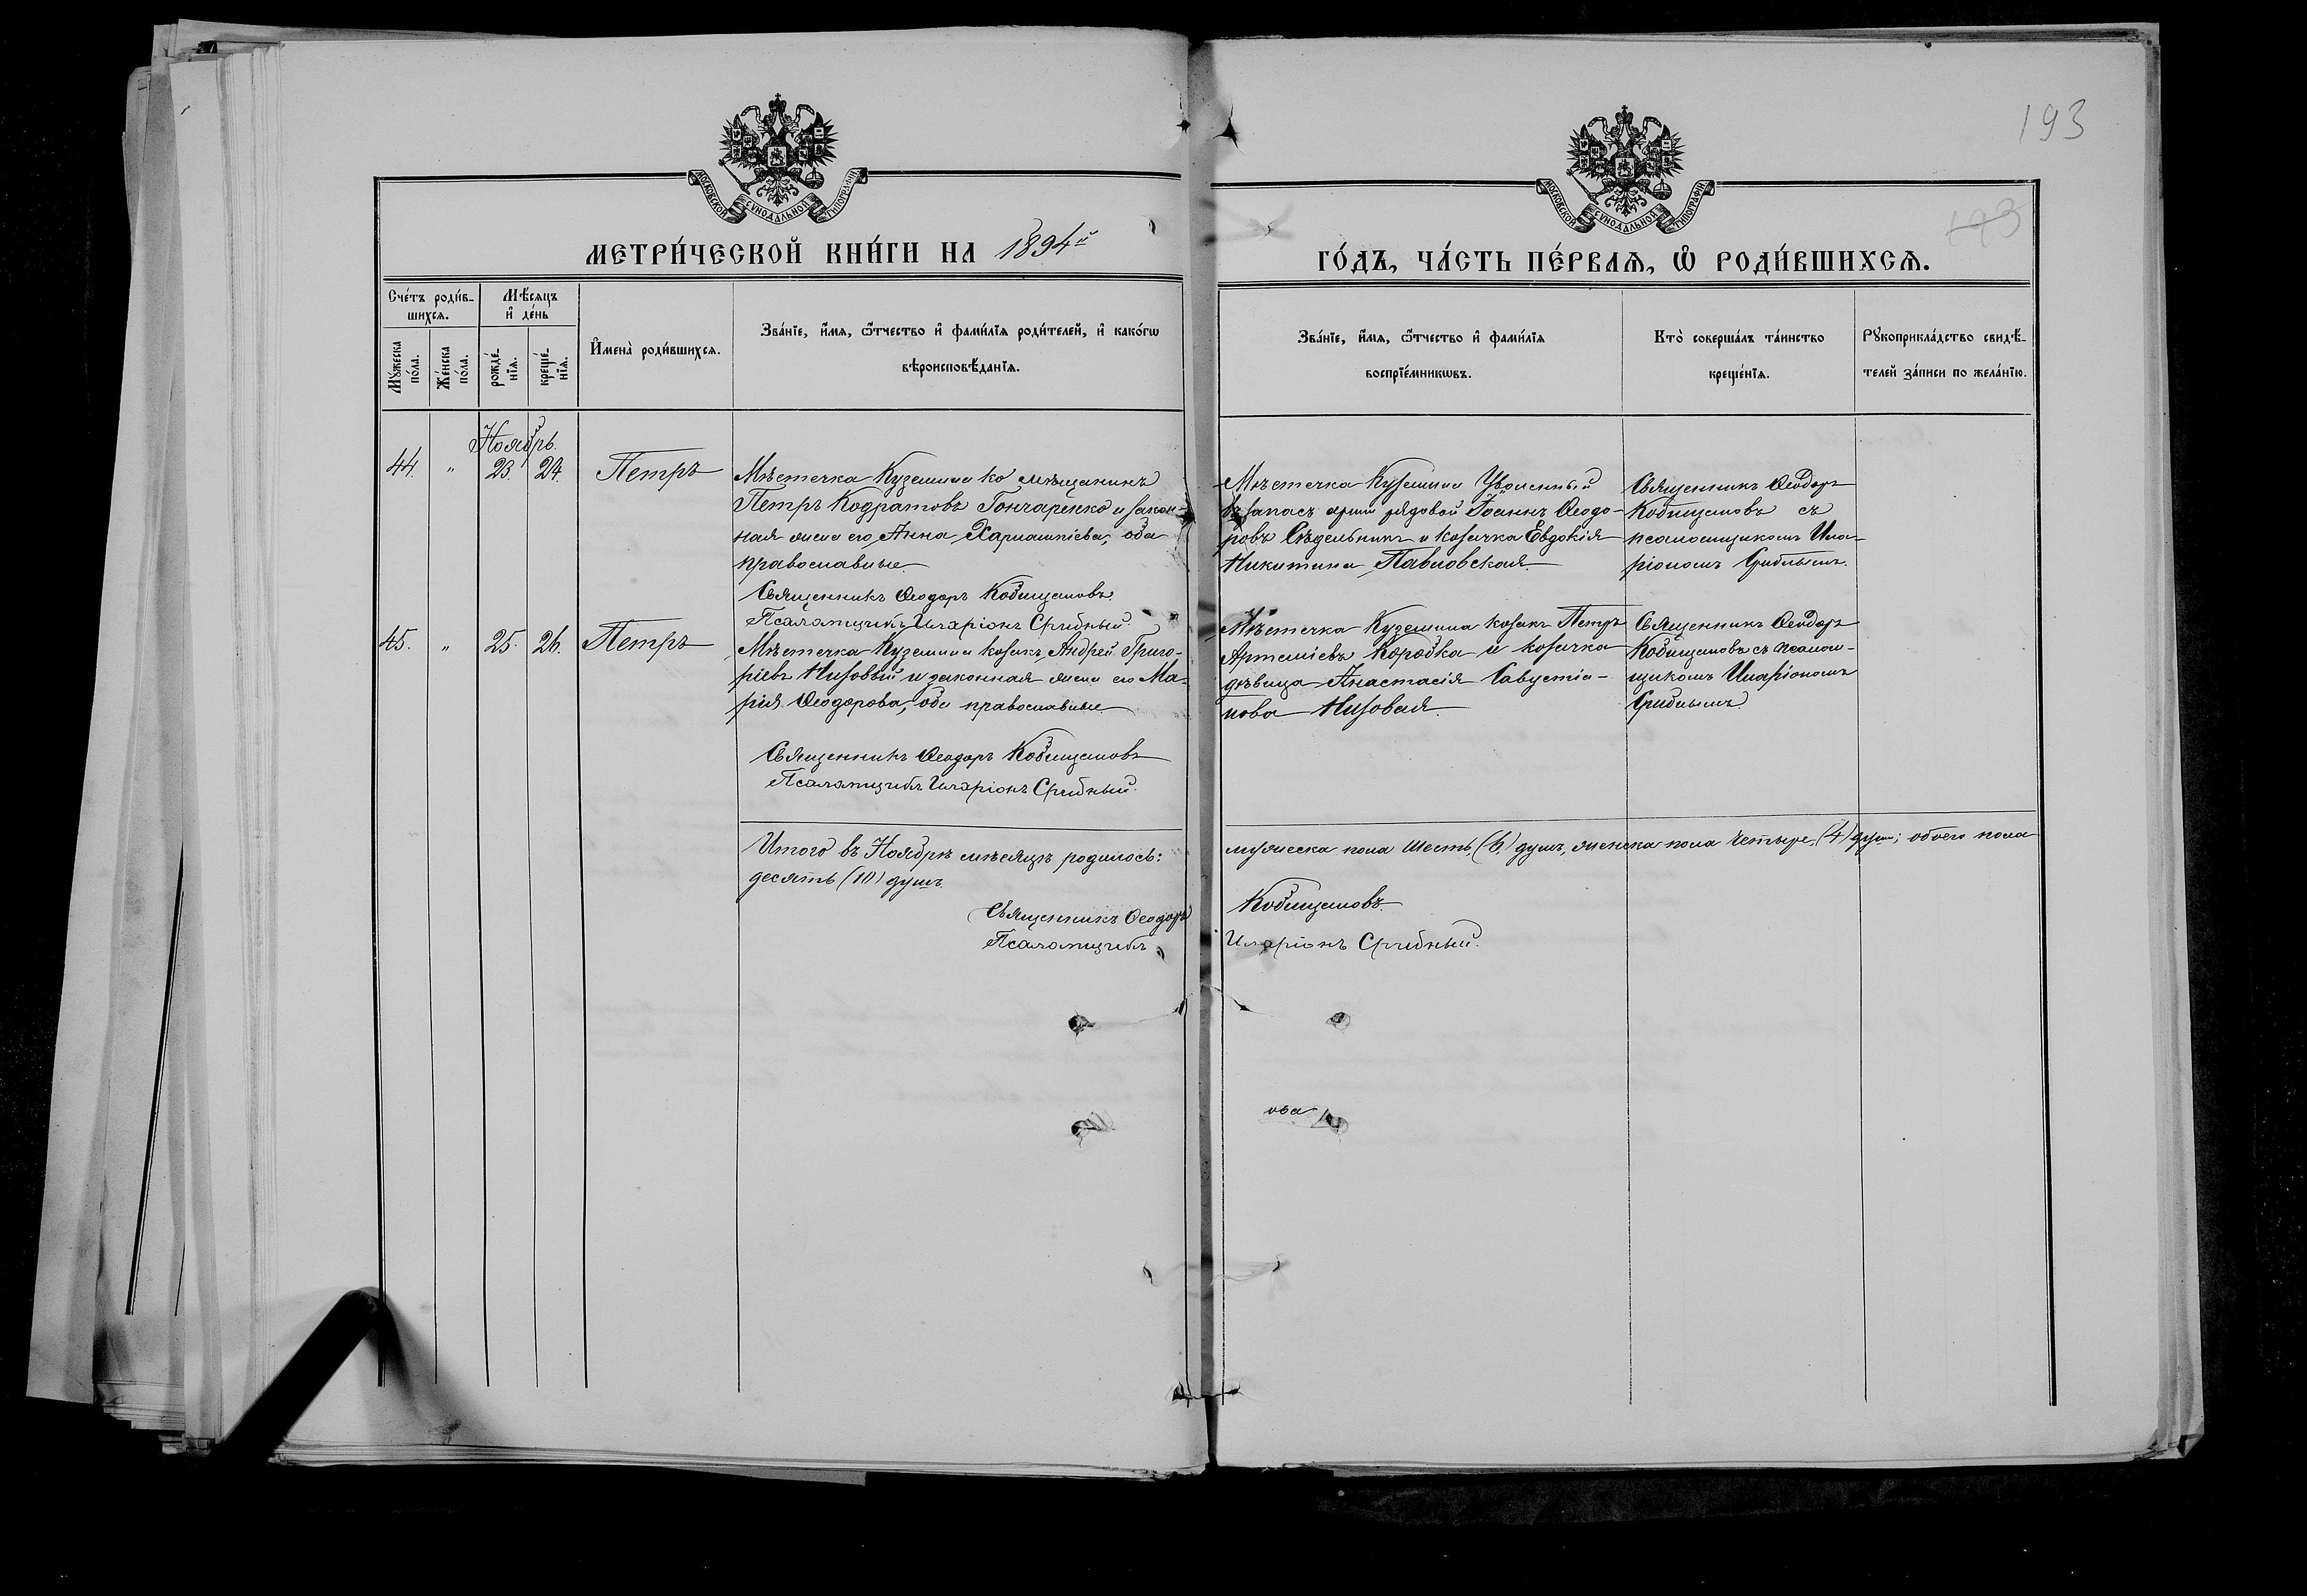 193
МОСКОВСКОЙ СѴНОДАЛЬНОЙ ТИПОГРАФІИ
МОСКОВСКОЙ СѴНОДАЛЬНОЙ ТИПОГРАФІИ
193
МЕТРИ́ЧЕСКОЙ КНИ́ГИ НА 1894й
ГО́ДЪ, ЧА́СТЬ ПЕ́РВАѦ, Ѡ РОДИ́ВШИХСѦ.
Сче́тъ роди́в-
шихсѧ.
Мѣ́сѧцъ
и де́нь
Мꙋ́жеска
по́ла.
Же́нска
по́ла.
рожде́-
нїѧ.
креще́-
нїѧ.
И҆мена̀ роди́вшихсѧ.
Зва́нїе, и҆́мѧ, ѻ҆́тчество и҆ фами́лїѧ роди́телей, и҆ како́гѡ
вѣроисповѣ́данїѧ.
Зва́нїе, и҆́мѧ, ѻ҆́тчество и҆ фами́лїѧ
воспрїе́мникѡвъ.
Кто̀ соверша́лъ та́инство
креще́нїѧ.
Рꙋкоприкла́дство свидѣ́-
телей за́писи по жела́нїю.
Ноябрь.
44. " 23. 24. Петръ
Мѣстечка Куземина мѣщанинъ
Петръ Кодратовъ Гончаренко и закон-
ная жена его Анна Харлампіева, оба
православные.
Священникъ Ѳеодоръ Кобищановъ.
Псаломщикъ Иларіонъ Срибный.
Мѣстечка Куземина Уволенный
въ запасъ арміи рядовой Іоаннъ Ѳеодо-
ровъ Сѣдельникъ и козачка Евдокія
Никитина Павловская.
Священникъ Ѳеодоръ
Кобищановъ съ
псаломщикомъ Ила-
ріономъ Срибнымъ.
45. " 25. 26. Петръ
Мѣстечка Куземина козакъ Андрей Григо-
ріевъ Низовый и законная жена его Ма-
рія Ѳеодорова, оба православные.
Священникъ Ѳеодоръ Кобищановъ
Псаломщикъ Иларіонъ Срибный.
Мѣстечка Куземина козакъ Петръ
Артеміевъ Коробка и козачка
дѣвица Анастасія Савустіа-
нова Низовая.
Священникъ Ѳеодоръ
Кобищановъ съ псалом-
щикомъ Иларіономъ
Срибнымъ.
Итого въ Ноябрѣ мѣсяцѣ родилось:
мужеска пола шесть (6) душъ, женска пола четыре (4) души; обоего пола
десять (10) душъ.
Священникъ Ѳеодоръ Кобищановъ.
Псаломщикъ Иларіонъ Срибный.
ова